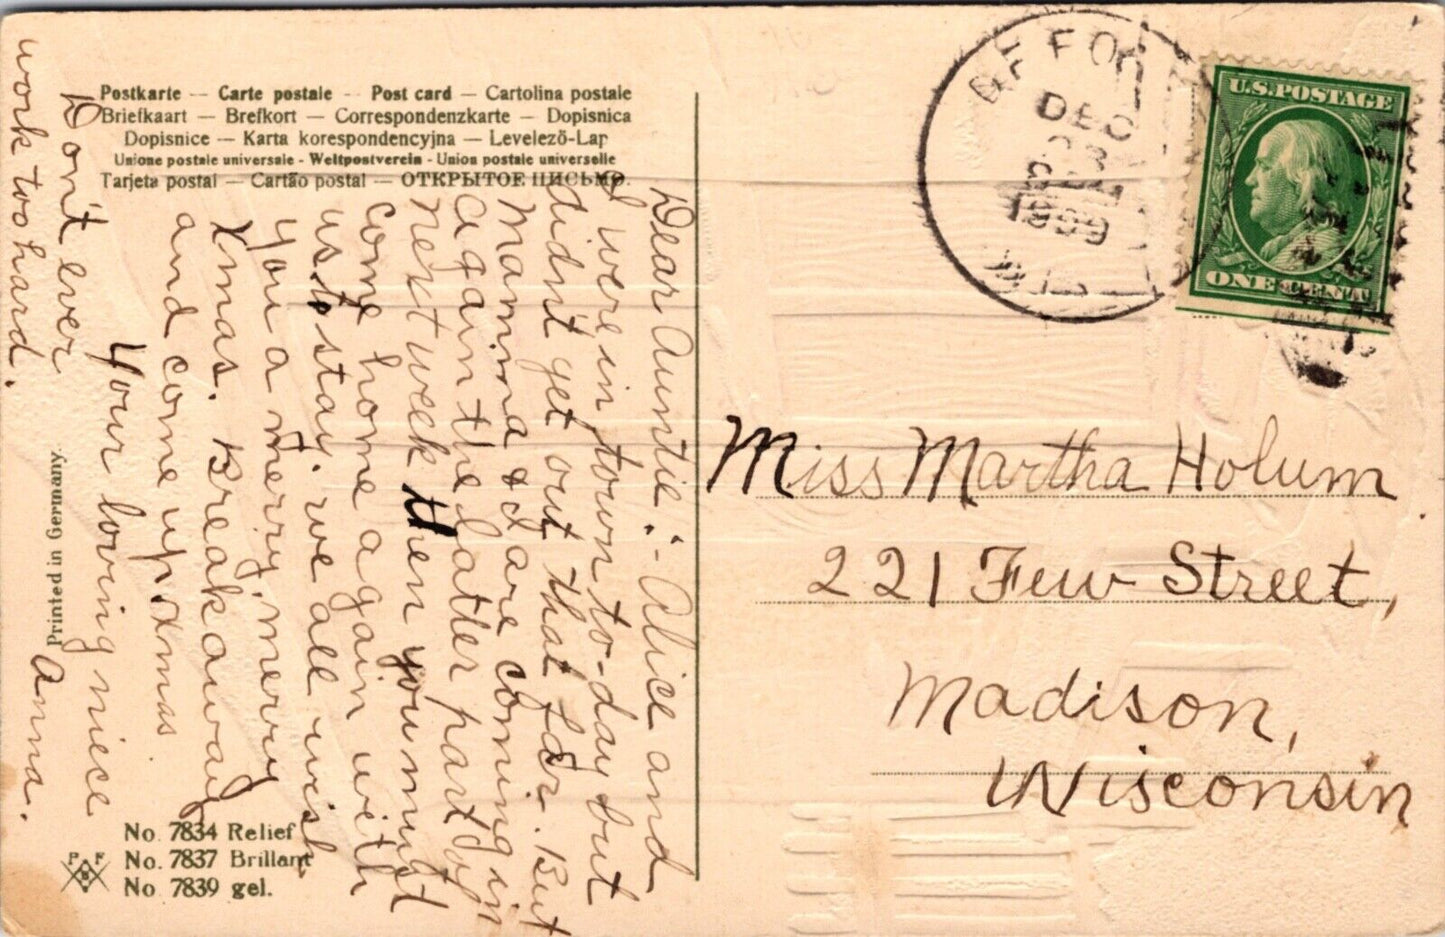 Postkarte — Carte postale — Post card — Cartolina postale
Briefkaart — Brefkort — Correspondenzkarte — Dopisnica
Dopisnice — Karta korespondencyjna — Levelező-Lap
Unione postale universale - Weltpostverein - Union postale universelle
Tarjeta postal — Cartão postal — ОТКРЫТОЕ ПИСЬМО.
Dear Auntie:- Alice and
I were in town to-day but
didn't get out that far. But
Mamma & I are coming in
again the latter part of
next week then you must
come home again with
us to stay. We all wish
you a merry, merry
Xmas. Break away
and come up Xmas
Your loving niece
Anna.
Don't ever
work too hard.
Printed in Germany.
No. 7834 Relief
No. 7837 Brillant
No. 7839 gel.
P F
B
DE FO
DEC
23
1909
WIS
U.S. POSTAGE
ONE CENT
Miss Martha Holum
221 Few Street,
Madison,
Wisconsin